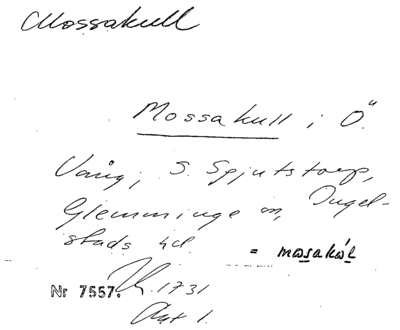 Mossakull
Mossakull i Ö.
Vång, S. Spjutstorp,
Glemminge sn, Ingel-
stads hd.
= mosakál
Nr 7557. 1731
Akt 1.